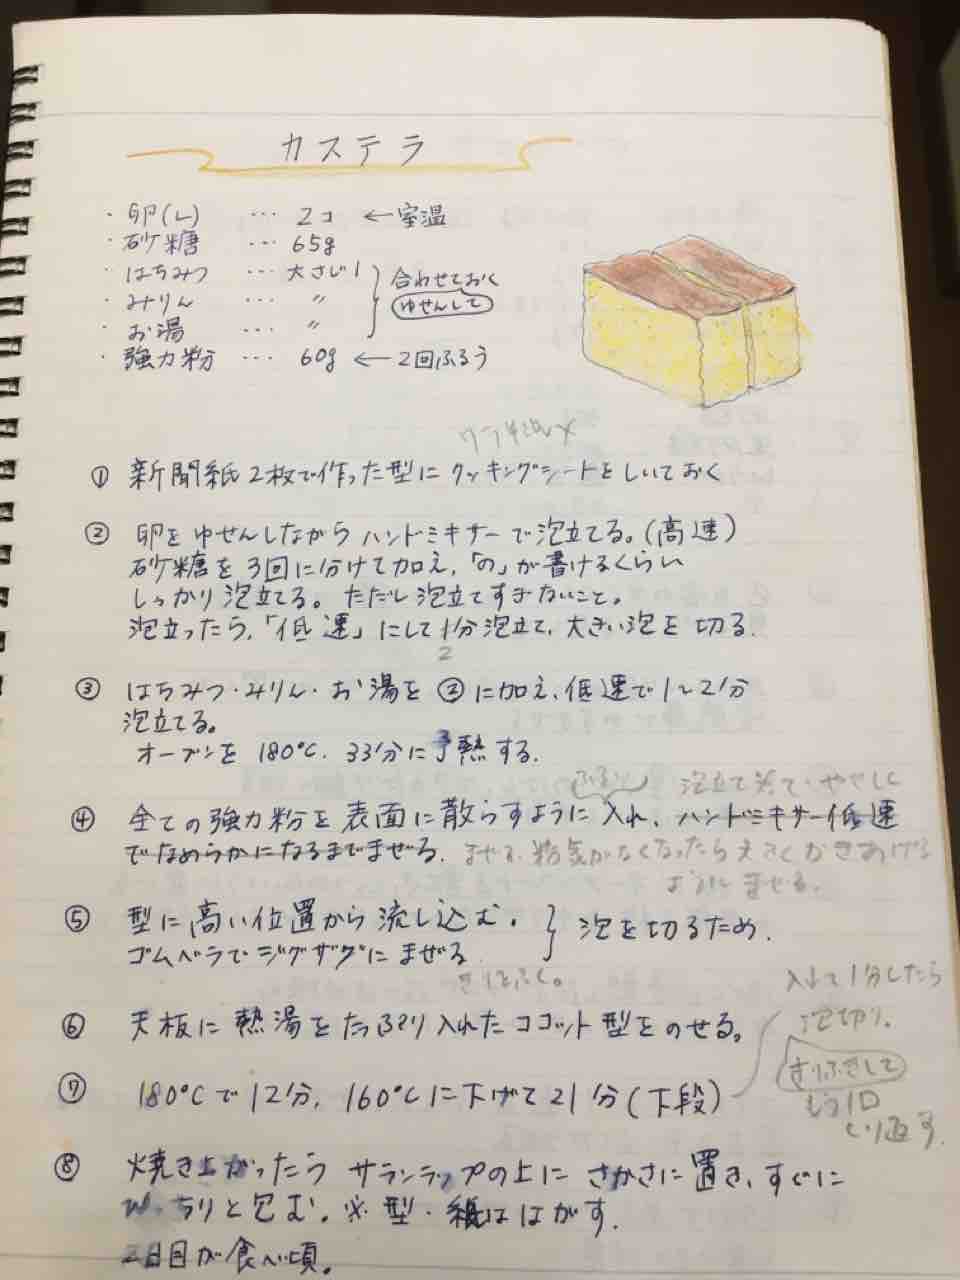 カステラ
・卵(L) … 2コ ←室温
・砂糖 … 65g
・はちみつ … 大さじ1
・みりん … 〃
・お湯 … 〃
合わせておく
ゆせんして
・強力粉 … 60g ← 2回ふるう
① 新聞紙2枚で作った型にクッキングシートをしいておく
② 卵をゆせんしながらハンドミキサーで泡立てる。(高速)
砂糖を3回に分けて加え、「の」が書けるくらい
しっかり泡立てる。ただし泡立てすぎないこと。
泡立ったら、「低速」にして1分泡立て、大きい泡を切る。
2
③ はちみつ・みりん・お湯を②に加え、低速で1〜2分
泡立てる。
オーブンを180℃、33分に予熱する。
ふるい 泡立て器で、やさしく
④ 全ての強力粉を表面に散らすように入れ、ハンドミキサー低速
でなめらかになるまでまぜる。まぜる。粉気がなくなったら大きくかきあげる
ようにまぜる。
⑤ 型に高い位置から流し込む。
ゴムベラでジグザグにまぜる
泡を切るため。
きりふく。
⑥ 天板に熱湯をたっぷり入れたココット型をのせる。
入れて1分したら
泡切り。
きりふきして
もう1回
くり返す。
⑦ 180℃で12分、160℃に下げて21分(下段)
⑧ 焼き上がったらサランラップの上にさかさに置き、すぐに
ぴっちりと包む。※型・紙ははがす。
2日目が食べ頃。